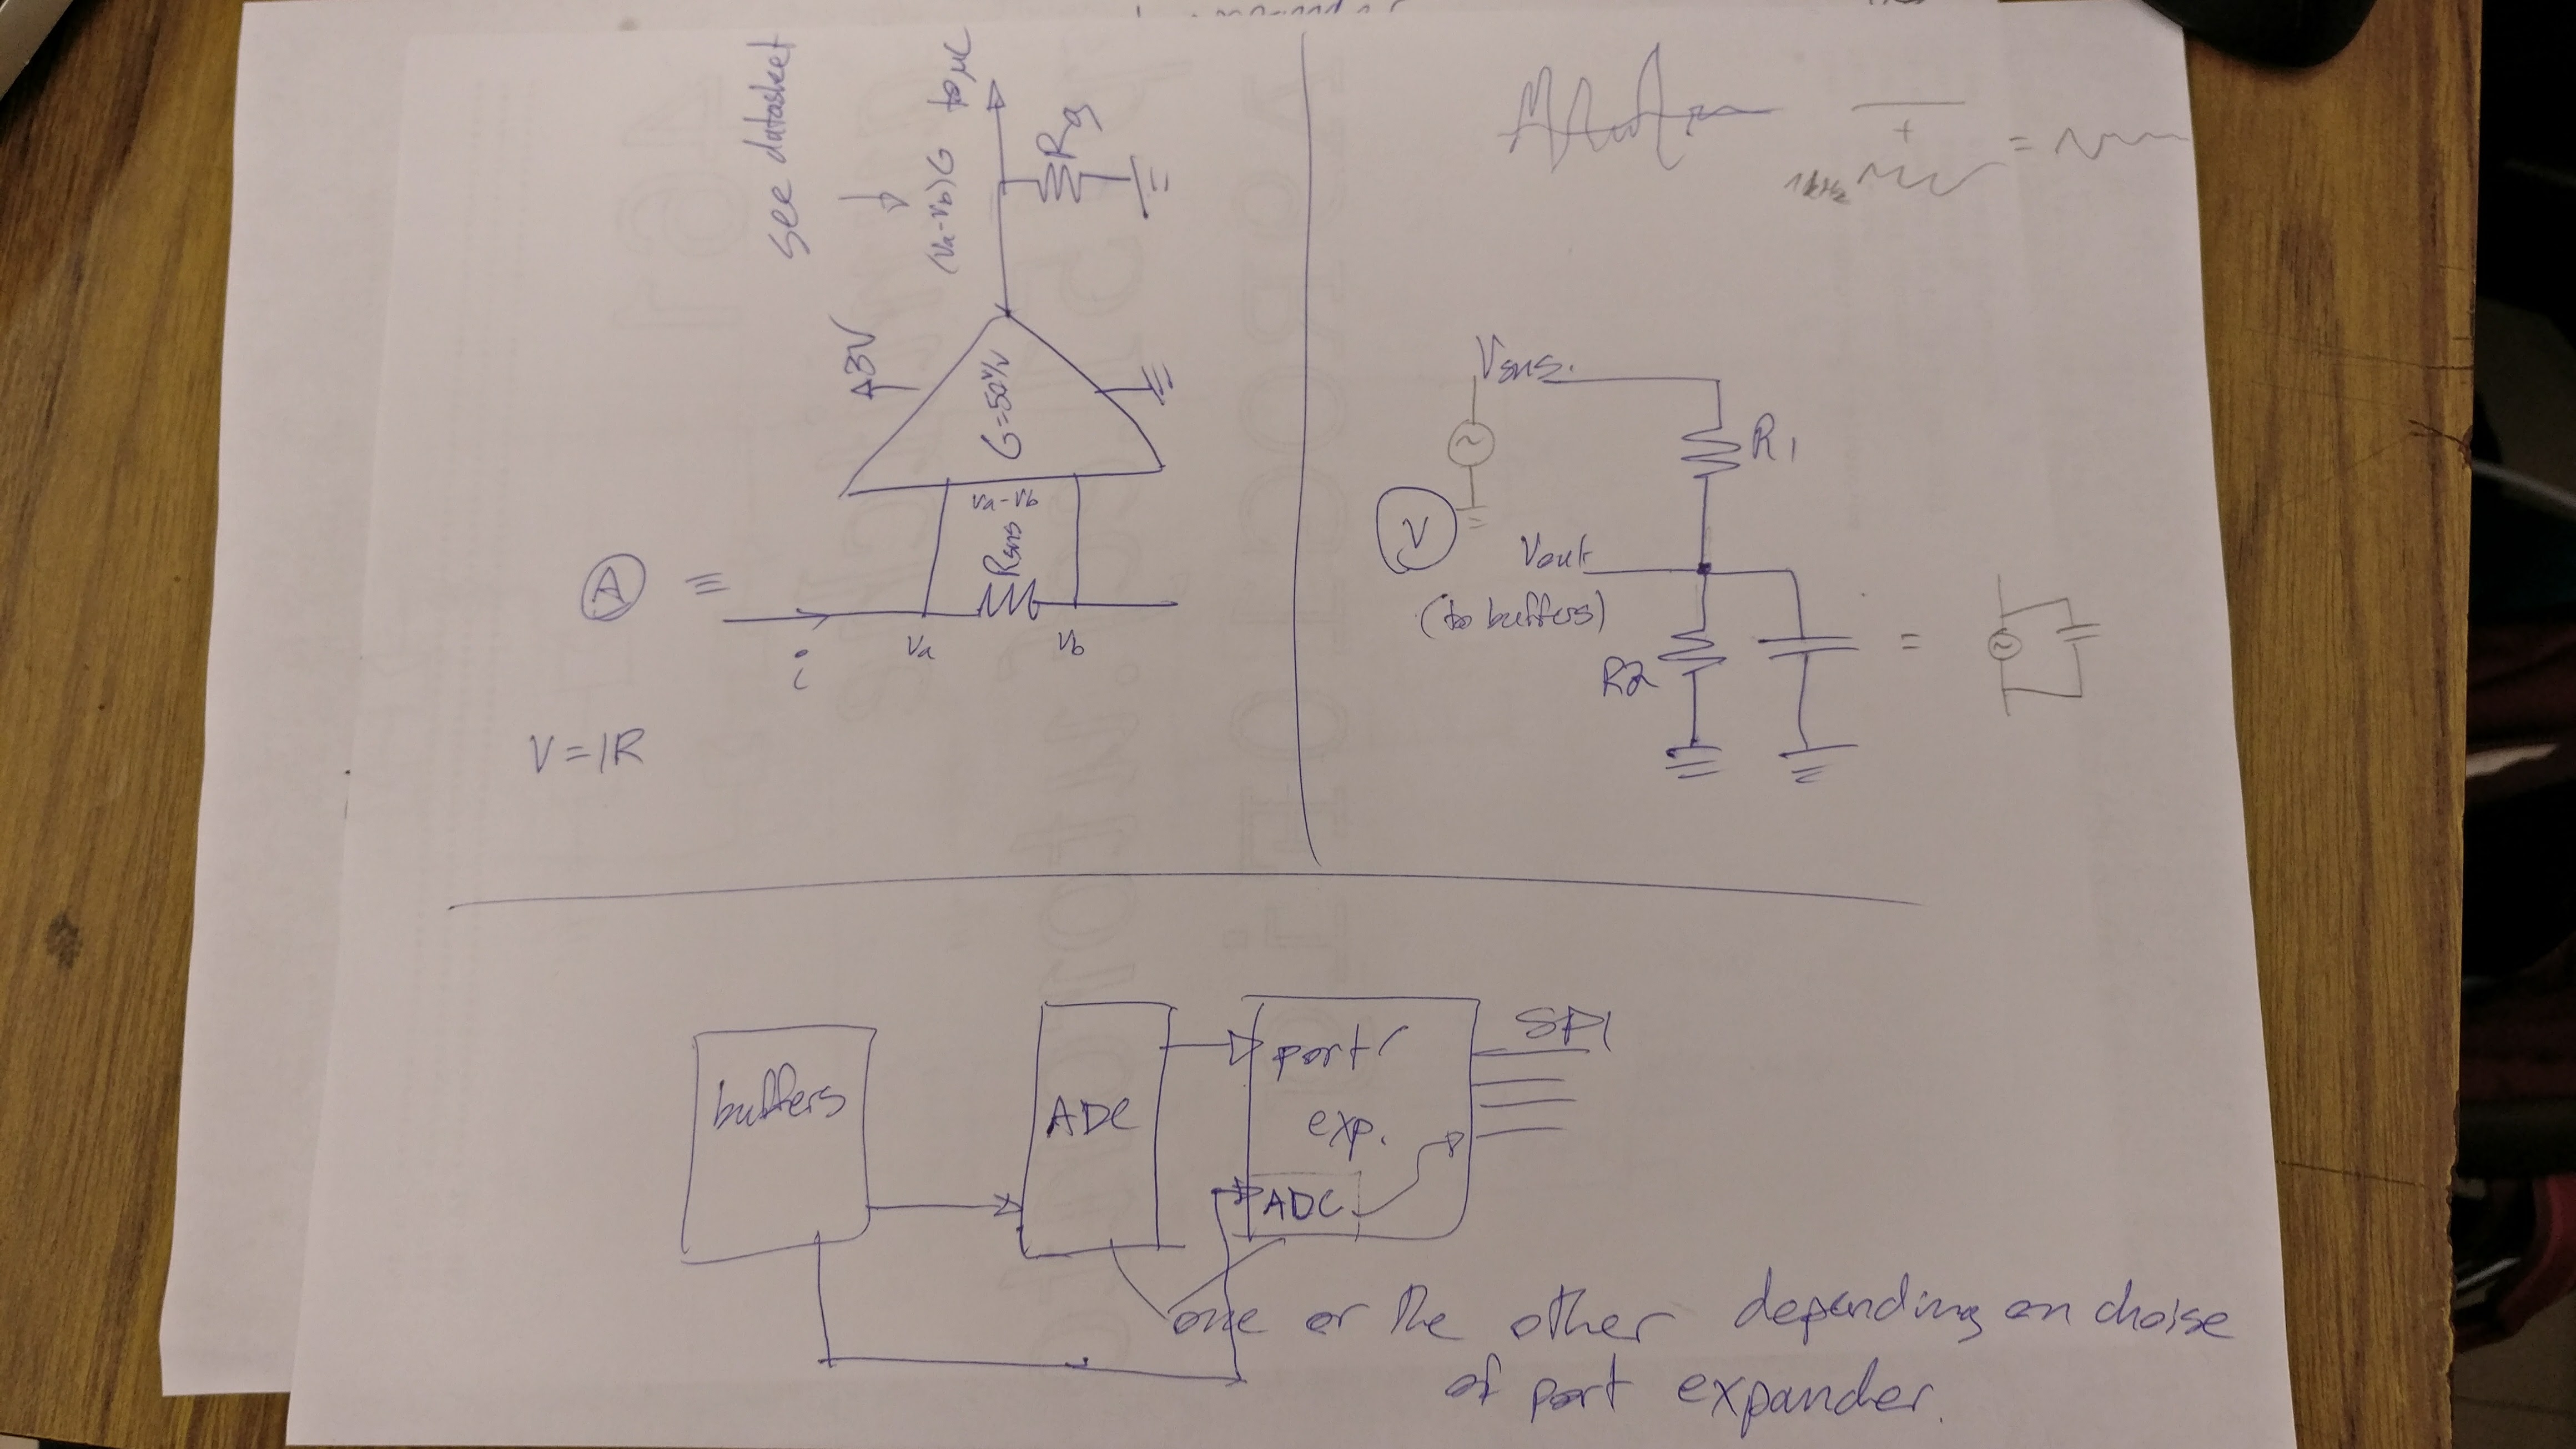 see datasket
(Va-Vb)G to μC
Rg
3V
G=50V/V
Va-Vb
Rsns
A
i
Va
Vb
V=IR
+
=
1kHz
Vsns.
R1
V
Vout
(to buffers)
R2
=
buffers
ADC
port
exp.
ADC
SPI
one or the other depending on choise
of port expander.